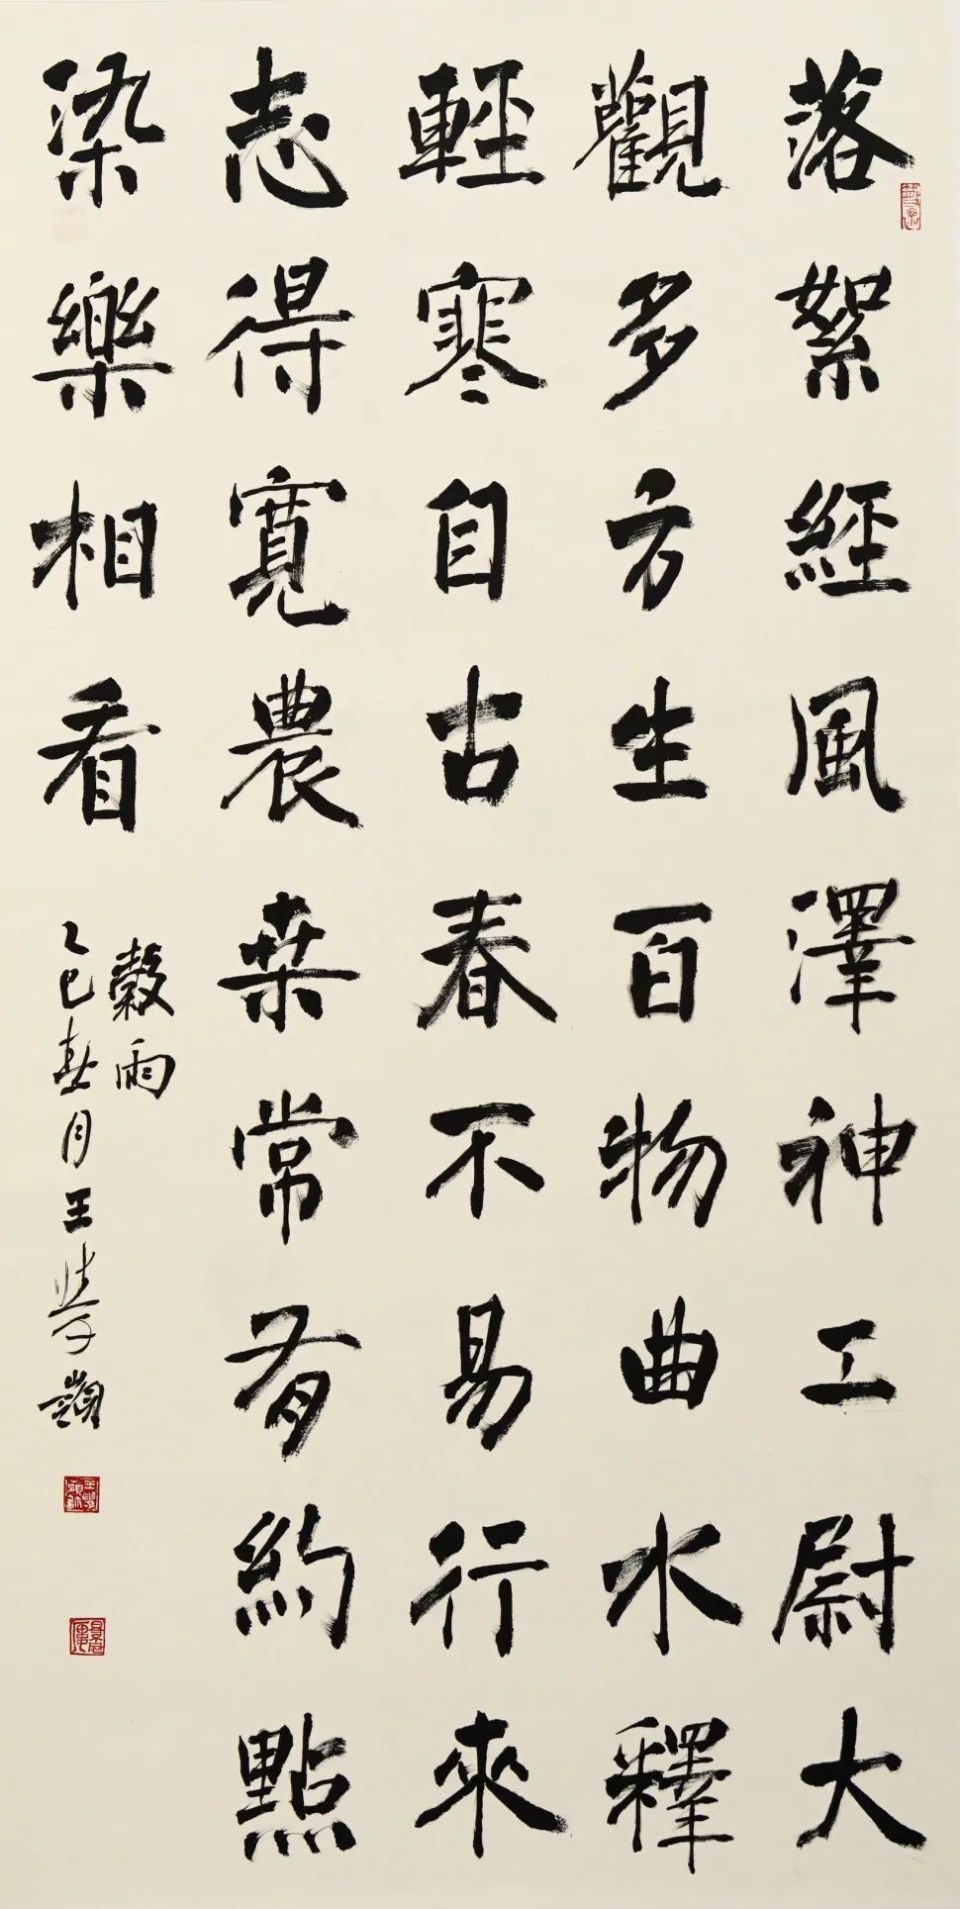 落絮經風澤神工尉大
觀多方生百物曲水釋
輕寒自古春不易行来
志得寬農桒常有約點
染樂相看
穀雨
乙巳春月王學嶺